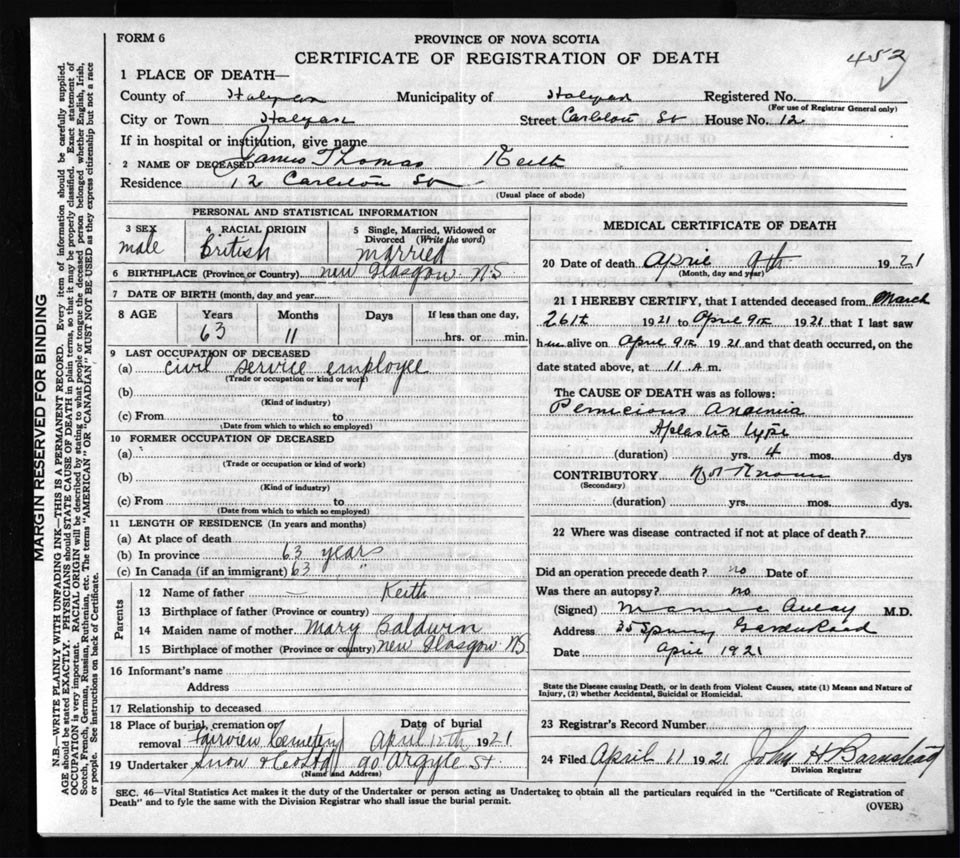 FORM 6
PROVINCE OF NOVA SCOTIA
CERTIFICATE OF REGISTRATION OF DEATH
452
1 PLACE OF DEATH—
County of Halifax Municipality of Halifax Registered No.
(For use of Registrar General only)
City or Town Halifax Street Carleton St House No. 12
If in hospital or institution, give name
2 NAME OF DECEASED James Thomas Keith
Residence 12 Carleton St
(Usual place of abode)
PERSONAL AND STATISTICAL INFORMATION
3 SEX 4 RACIAL ORIGIN 5 Single, Married, Widowed or Divorced (Write the word)
male British married
6 BIRTHPLACE (Province or Country) New Glasgow N.S
7 DATE OF BIRTH (month, day and year)
8 AGE Years Months Days If less than one day,
63 11 hrs. or min.
9 LAST OCCUPATION OF DECEASED
(a) civil service employee
(Trade or occupation or kind or work)
(b)
(Kind of industry)
(c) From to
(Date from which to which so employed)
10 FORMER OCCUPATION OF DECEASED
(a)
(Trade or occupation or kind of work)
(b)
(Kind of industry)
(c) From to
(Date from which to which so employed)
11 LENGTH OF RESIDENCE (In years and months)
(a) At place of death
(b) In province 63 years
(c) In Canada (if an immigrant) 63 "
Parents
12 Name of father — Keith
13 Birthplace of father (Province or country)
14 Maiden name of mother Mary Baldwin
15 Birthplace of mother (Province or country) New Glasgow NS
16 Informant's name
Address
17 Relationship to deceased
18 Place of burial, cremation or Date of burial
removal Fairview Cemetery April 12th 1921
19 Undertaker Snow & Co Ltd 90 Argyle St.
(Name and Address)
MEDICAL CERTIFICATE OF DEATH
20 Date of death April 9th 1921
(Month, day and year)
21 I HEREBY CERTIFY, that I attended deceased from March
26th 1921 to April 9th 1921 that I last saw
him alive on April 9th 1921 and that death occurred, on the
date stated above, at 11 A m.
The CAUSE OF DEATH was as follows:
Pernicious Anaemia
Aplastic type
(duration) yrs. 4 mos. dys
CONTRIBUTORY Not Known
(Secondary)
(duration) yrs. mos. dys.
22 Where was disease contracted if not at place of death?
Did an operation precede death? no Date of
Was there an autopsy? no
(Signed) M.D.
Address 35 Spring Garden Road
Date April 1921
State the Disease causing Death, or in death from Violent Causes, state (1) Means and Nature of
Injury, (2) whether Accidental, Suicidal or Homicidal.
23 Registrar's Record Number
24 Filed April 11 1921 John H Barnstead
Division Registrar
SEC. 46—Vital Statistics Act makes it the duty of the Undertaker or person acting as Undertaker to obtain all the particulars required in the "Certificate of Registration of
Death" and to fyle the same with the Division Registrar who shall issue the burial permit.
(OVER)
MARGIN RESERVED FOR BINDING
N.B.—WRITE PLAINLY WITH UNFADING INK—THIS IS A PERMANENT RECORD. Every item of information should be carefully supplied.
AGE should be stated EXACTLY. PHYSICIANS should STATE CAUSE OF DEATH in plain terms, so that it may be properly classified. Exact statement of
OCCUPATION is very important. RACIAL ORIGIN will be described by stating to what people or tongue the deceased person belonged whether English, Irish,
Scotch, French, German, Russian, Ruthenian, etc. The terms "AMERICAN" OR "CANADIAN" MUST NOT BE USED as they express citizenship but not a race
or people. See instructions on back of Certificate.